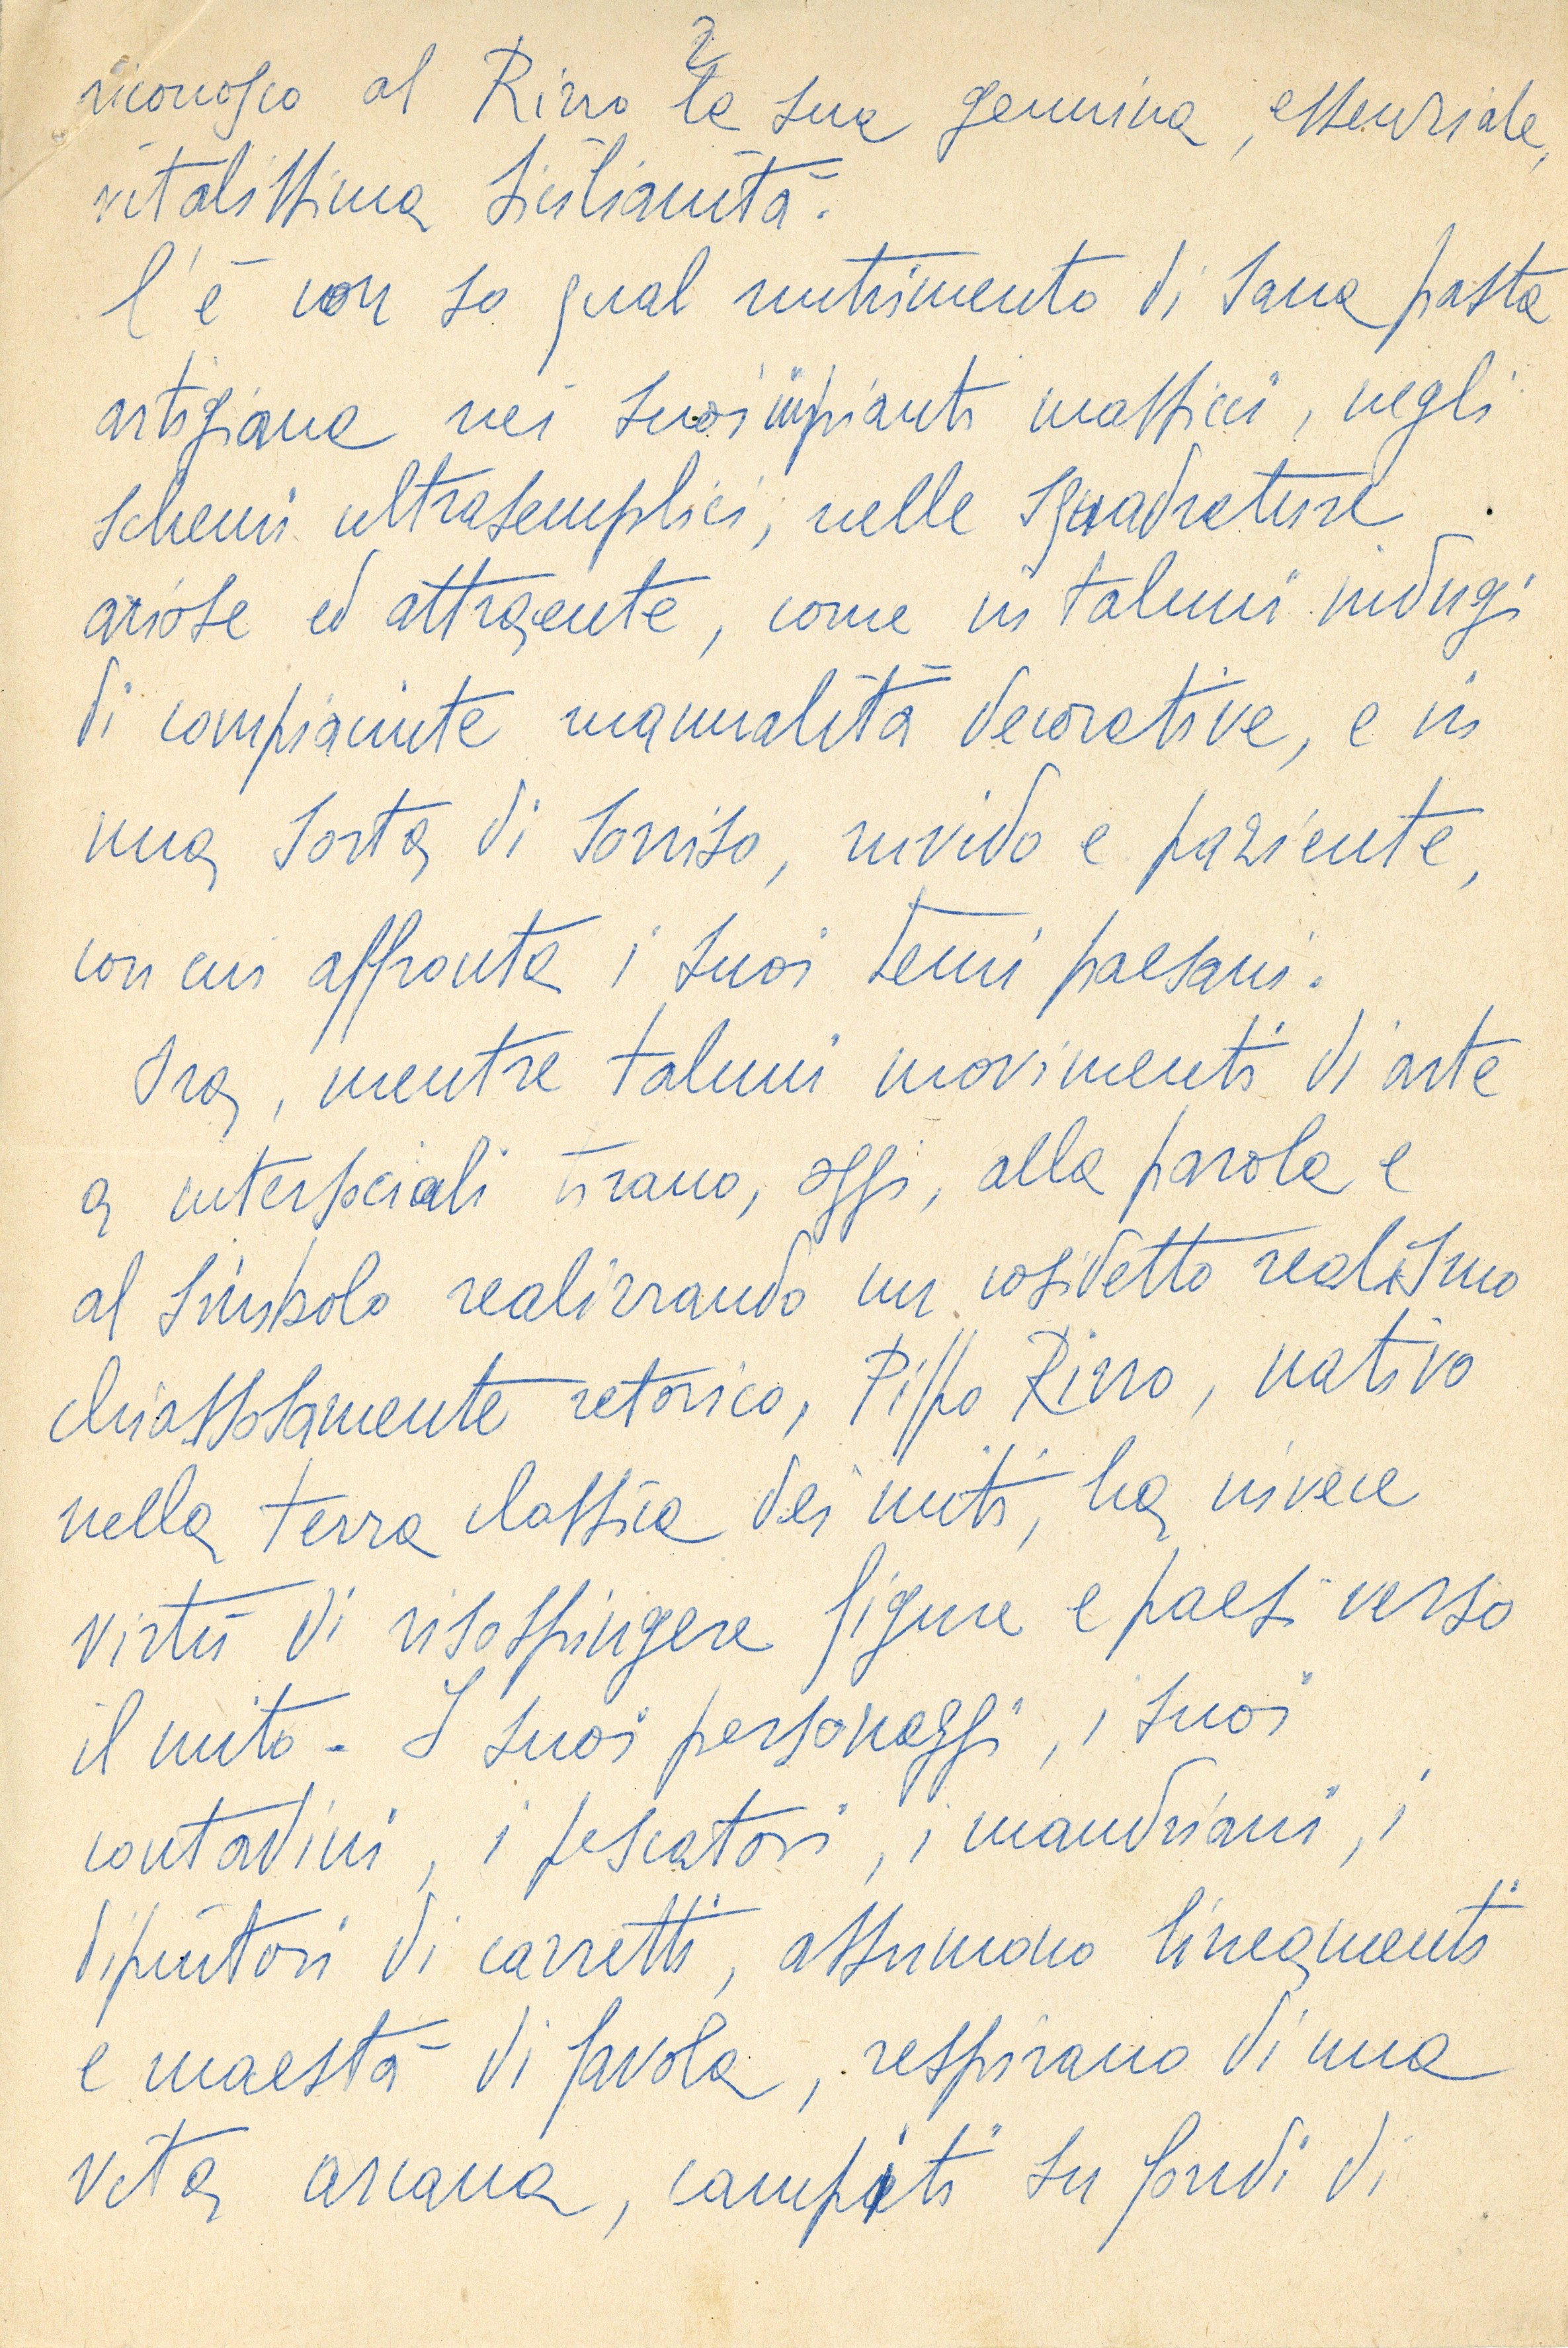 2
riconosco al Rizzo la sua genuina, essenziale,
vitalissima sicilianità.
C'è non so qual nutrimento di sana pasta
artigiana nei suoi impianti massicci, negli
schemi ultrasemplici, nelle squadrature
ariose ed attraente, come in taluni indugi
di compiaciute manualità decorative, e in
una sorta di sorriso, ruvido e paziente,
con cui affronta i suoi temi paesani.
Ora, mentre taluni movimenti di arte
a intersociali tirano, oggi, alla parola e
al simbolo realizzando un cosidetto realismo
chiassosamente retorico, Pippo Rizzo, nativo
nella terra classica dei miti, ha invece
virtù di risospingere figure e paesi verso
il mito. I suoi personaggi, i suoi
contadini, i pescatori, i mandriani, i
dipintori di carretti, assumono lineamenti
e maestà di favola, respirano di una
vita arcana, campiti su fondi di